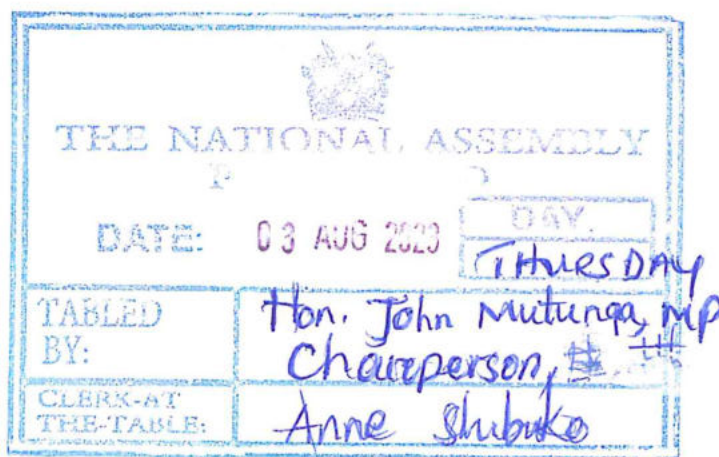 THE NATIONAL ASSEMBLY
DATE: 03 AUG 2023
DAY.
THURSDAY
TABLED BY:
Hon. John Mutunga, MP
Chairperson,
CLERK-AT THE-TABLE:
Anne Shibuko